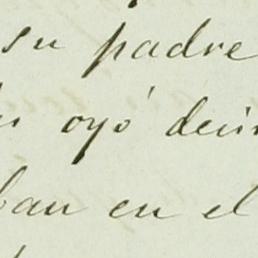 su padre
oyó decir
ban en el